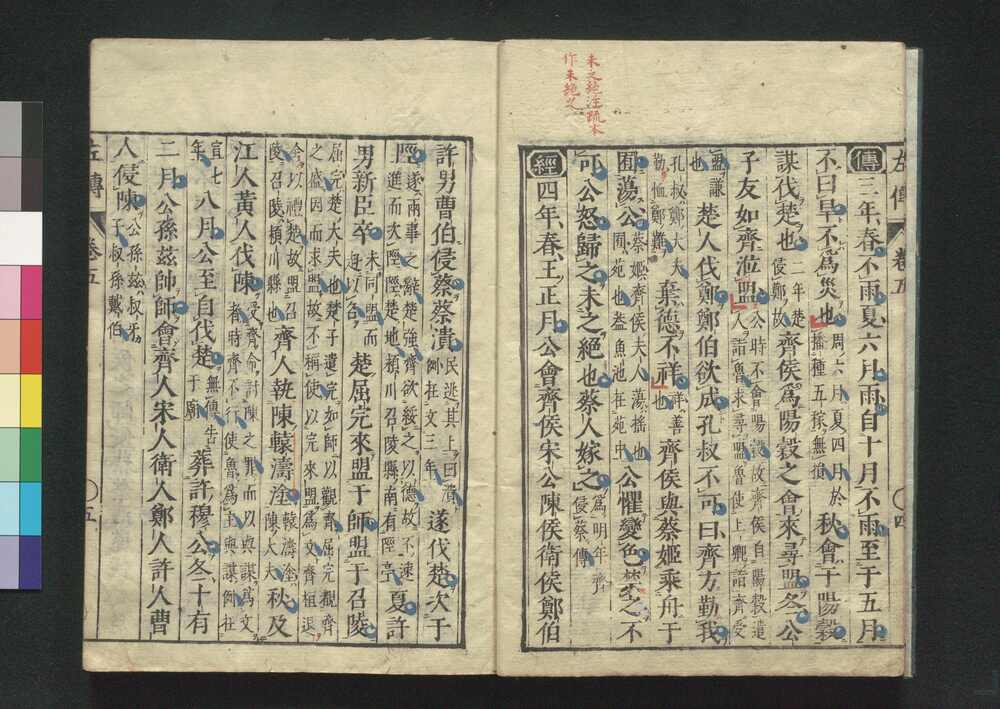 未之絶注疏本
作未絶之
左傳 卷五 四
傳三年春不雨夏六月雨自十月不雨至于五月
不曰旱不爲災也周六月夏四月於播種五稼無損秋會于陽穀
謀伐楚也二年楚侵鄭故齊侯爲陽穀之會來尋盟冬公
子友如齊涖盟公時不會陽穀故齊侯自陽穀遣人詣魯求尋盟魯使上卿詣齊受
盟謙也楚人伐鄭鄭伯欲成孔叔不可曰齊方勤我
孔叔鄭大夫勤恤鄭難棄德不祥祥善也齊侯與蔡姬乘舟于
囿蕩公蔡姬齊侯夫人蕩揺也囿苑也蓋魚池在苑中公懼變色禁之不
可公怒歸之未之絶也蔡人嫁之爲明年齊侵蔡傳
經四年春王正月公會齊侯宋公陳侯衛侯鄭伯
許男曹伯侵蔡蔡潰民逃其上曰潰例在文三年遂伐楚次于
陘遂兩事之辭楚強齊欲綏之以德故不速進而次陘陘楚地頴川召陵縣南有陘亭夏許
男新臣卒未同盟而赴以名楚屈完來盟于師盟于召陵
屈完楚大夫也楚子遣完如師以觀齊屈完覩齊之盛因而求盟故不稱使以完來盟爲文齊桓退
舍以禮楚故盟召陵召陵頴川縣也齊人執陳轅濤塗轅濤塗陳大夫秋及
江人黃人伐陳受齊命討陳之罪而以與謀爲文者時齊不行使魯爲主與謀例在
宣七年八月公至自伐楚無傳告于廟葬許穆公冬十有
二月公孫茲帥師會齊人宋人衛人鄭人許人曹
人侵陳公孫茲叔牙子叔孫戴伯
左傳 卷五 五